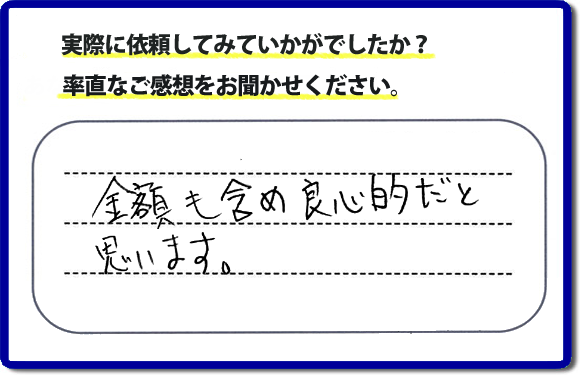 実際に依頼してみていかがでしたか？
率直なご感想をお聞かせください。
金額も含め良心的だと
思います。